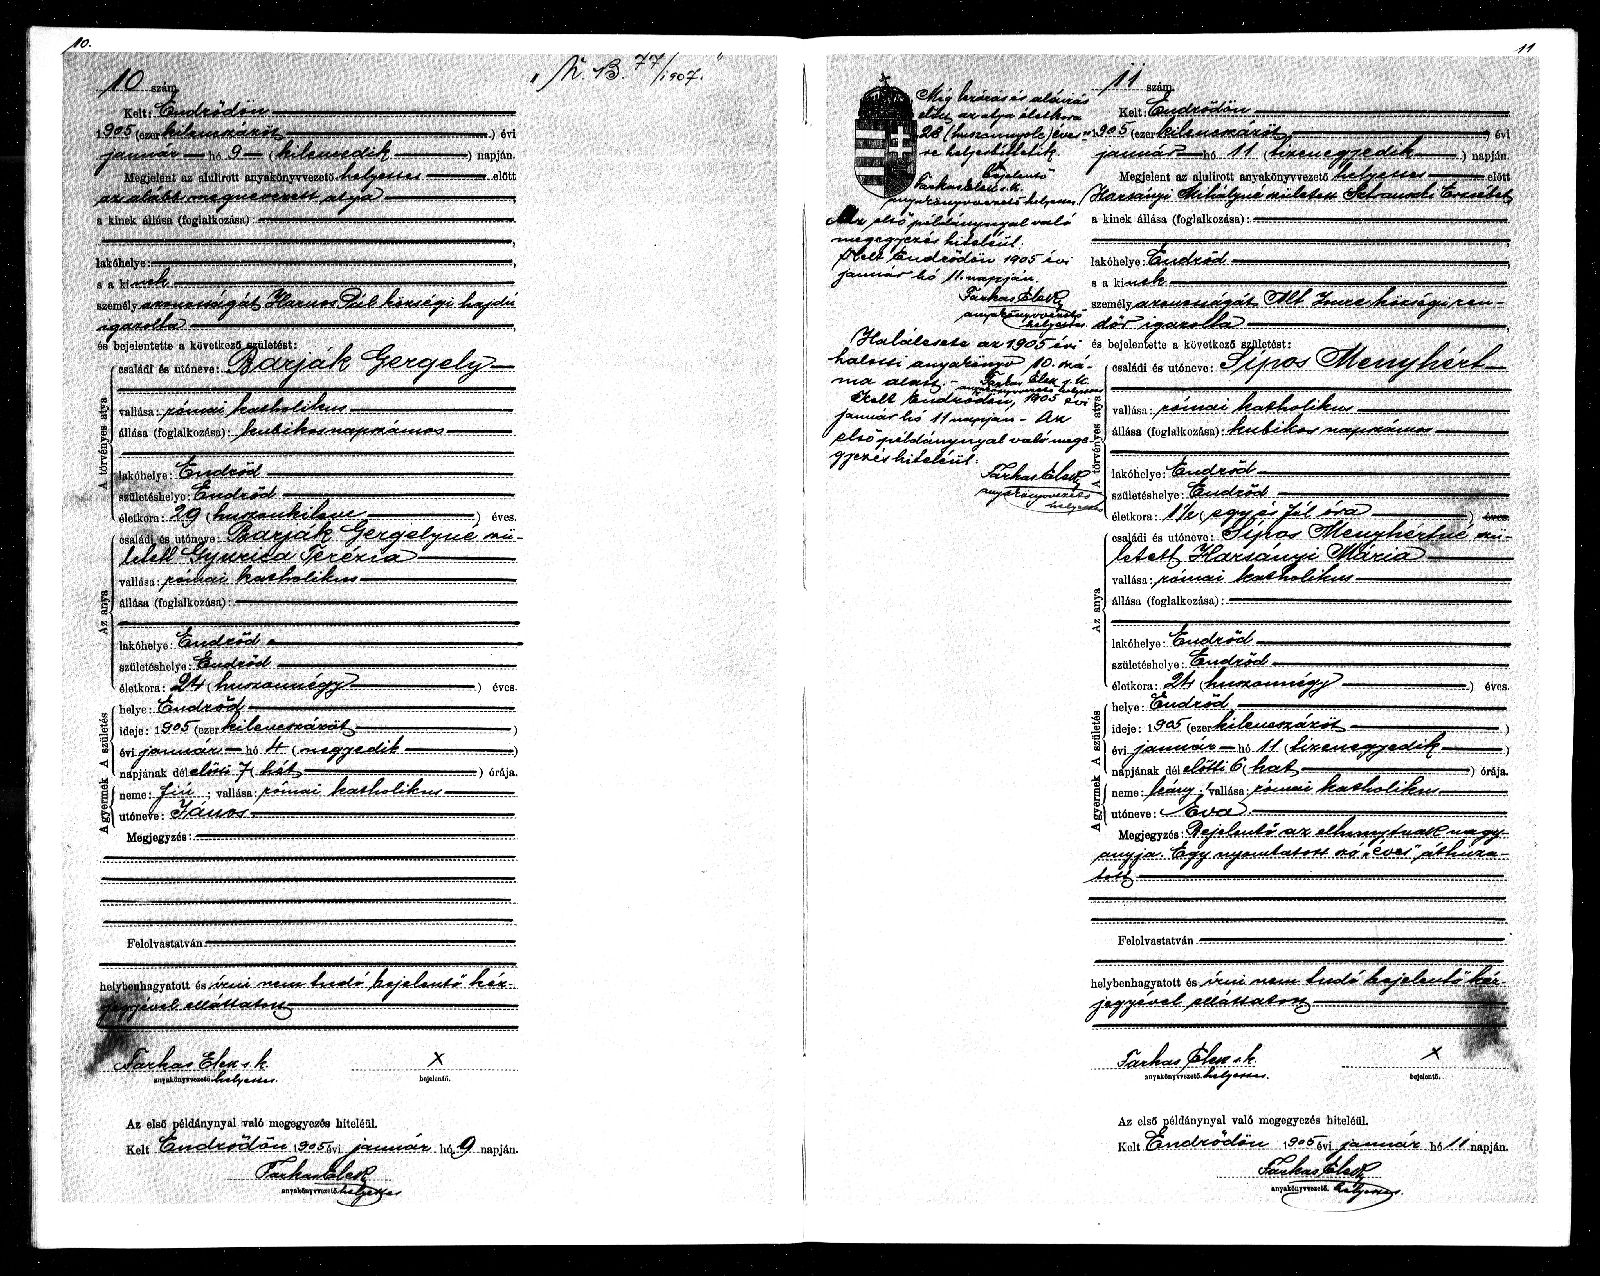 10.
10 szám.
„N. B. 77/1907."
Kelt: Endrődön
1905 (ezer kilenczszázöt) évi
január hó 9 (kilenczedik) napján.
Megjelent az alulirott anyakönyvvezető helyettes előtt
az alább megnevezett atya
a kinek állása (foglalkozása):
lakóhelye:
s a kinek
személyazonosságát Hornos Pál községi hajdú
igazolta
és bejelentette a következő születést:
A törvényes atya
családi és utóneve: Barják Gergely
vallása: római katholikus
állása (foglalkozása): kubikosnapszámos
lakóhelye: Endrőd
születéshelye: Endrőd
életkora: 29 (huszonkilenc) éves.
Az anya
családi és utóneve: Barják Gergelyné szü-
letett Gyuricza Terézia
vallása: római katholikus
állása (foglalkozása):
lakóhelye: Endrőd
születéshelye: Endrőd
életkora: 24 (huszonnégy) éves.
A gyermek A születés
helye: Endrőd
ideje: 1905 (ezer kilenczszázöt)
évi január hó 4 (negyedik)
napjának délelőtti 7 (hét) órája.
neme: fiú; vallása: római katholikus
utóneve: János
Megjegyzés:
Felolvastatván
helybenhagyatott és irni nem tudó bejelentő kéz-
jegyével elláttatott
Farkas Elek s. k. x
anyakönyvvezető helyettes. bejelentő.
Az első példánynyal való megegyezés hiteléül.
Kelt Endrődön 1905 évi január hó 9 napján.
Farkas Elek
anyakönyvvezető helyettes
11
Még bezárás és aláírás
előtt az atya életkora
28 (huszonnyolc) éves-
re helyesbíttetik.
x bejelentő
Farkas Elek s. k.
anyakönyvvezető helyettes.
Az első példánynyal való
megegyezés hiteléül.
Kelt Endrődön 1905 évi
január hó 11. napján.
Farkas Elek
anyakönyvvezető
helyettes
Halálesete az 1905 évi
halotti anyakönyv 10. szá-
ma alatt. Farkas Elek s. k.
anyakönyvvezető helyettes
Kelt Endrődön, 1905 évi
január hó 11 napján - Az
első példánynyal való mege-
gyezés hiteléül.
Farkas Elek
anyakönyvvezető
helyettes
11 szám.
Kelt: Endrődön
1905 (ezer kilenczszázöt) évi
január hó 11 (tizenegyedik) napján.
Megjelent az alulirott anyakönyvvezető helyettes előtt
Harsányi Mihályné született Erzsébet
a kinek állása (foglalkozása):
lakóhelye: Endrőd
s a kinek
személyazonosságát Alt Imre községi ren-
dőr igazolta
és bejelentette a következő születést:
A törvényes atya
családi és utóneve: Sipos Menyhért
vallása: római katholikus
állása (foglalkozása): kubikos napszámos
lakóhelye: Endrőd
születéshelye: Endrőd
életkora: 1½ (egy és fél óra) éves
Az anya
családi és utóneve: Sipos Menyhértné szü-
letett Harsányi Mária
vallása: római katholikus
állása (foglalkozása):
lakóhelye: Endrőd
születéshelye: Endrőd
életkora: 24 (huszonnégy) éves.
A gyermek A születés
helye: Endrőd
ideje: 1905 (ezer kilenczszázöt)
évi január hó 11 (tizenegyedik)
napjának délelőtti 6 (hat) órája.
neme: leány; vallása: római katholikus
utóneve: Éva
Megjegyzés: Bejelentő az elhunytnak nagy-
anyja. Egy nyomtatott szó „éves" áthúza-
tott
Felolvastatván
helybenhagyatott és irni nem tudó bejelentő kéz-
jegyével elláttatott
Farkas Elek s. k. x
anyakönyvvezető helyettes. bejelentő.
Az első példánynyal való megegyezés hiteléül.
Kelt Endrődön 1905 évi január hó 11 napján.
Farkas Elek
anyakönyvvezető. helyettes.